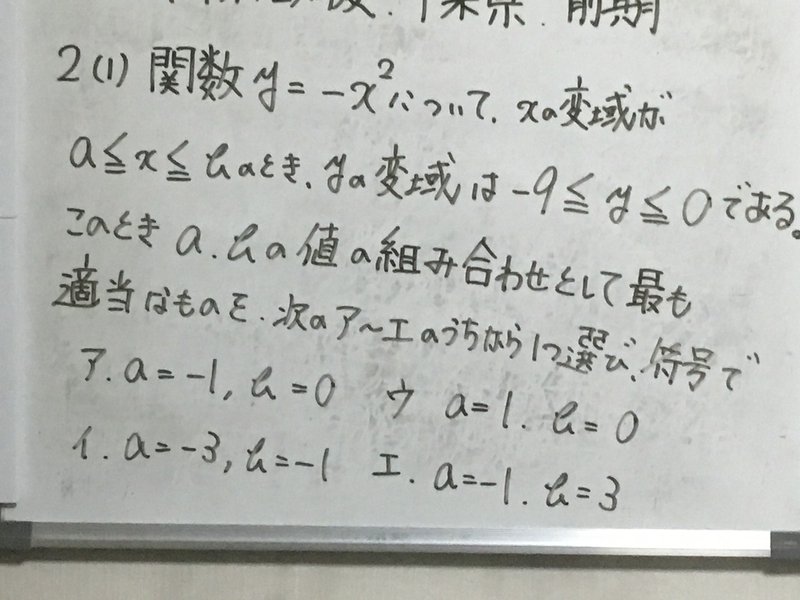 千葉県.前期
2(1) 関数y=-x²について、xの変域が
a≦x≦bのとき、yの変域は-9≦y≦0である。
このときa.bの値の組み合わせとして最も
適当なものを、次のア〜エのうちから1つ選び、符号で
ア. a=-1, b=0 ウ a=1. b=0
イ. a=-3, b=-1 エ. a=-1. b=3